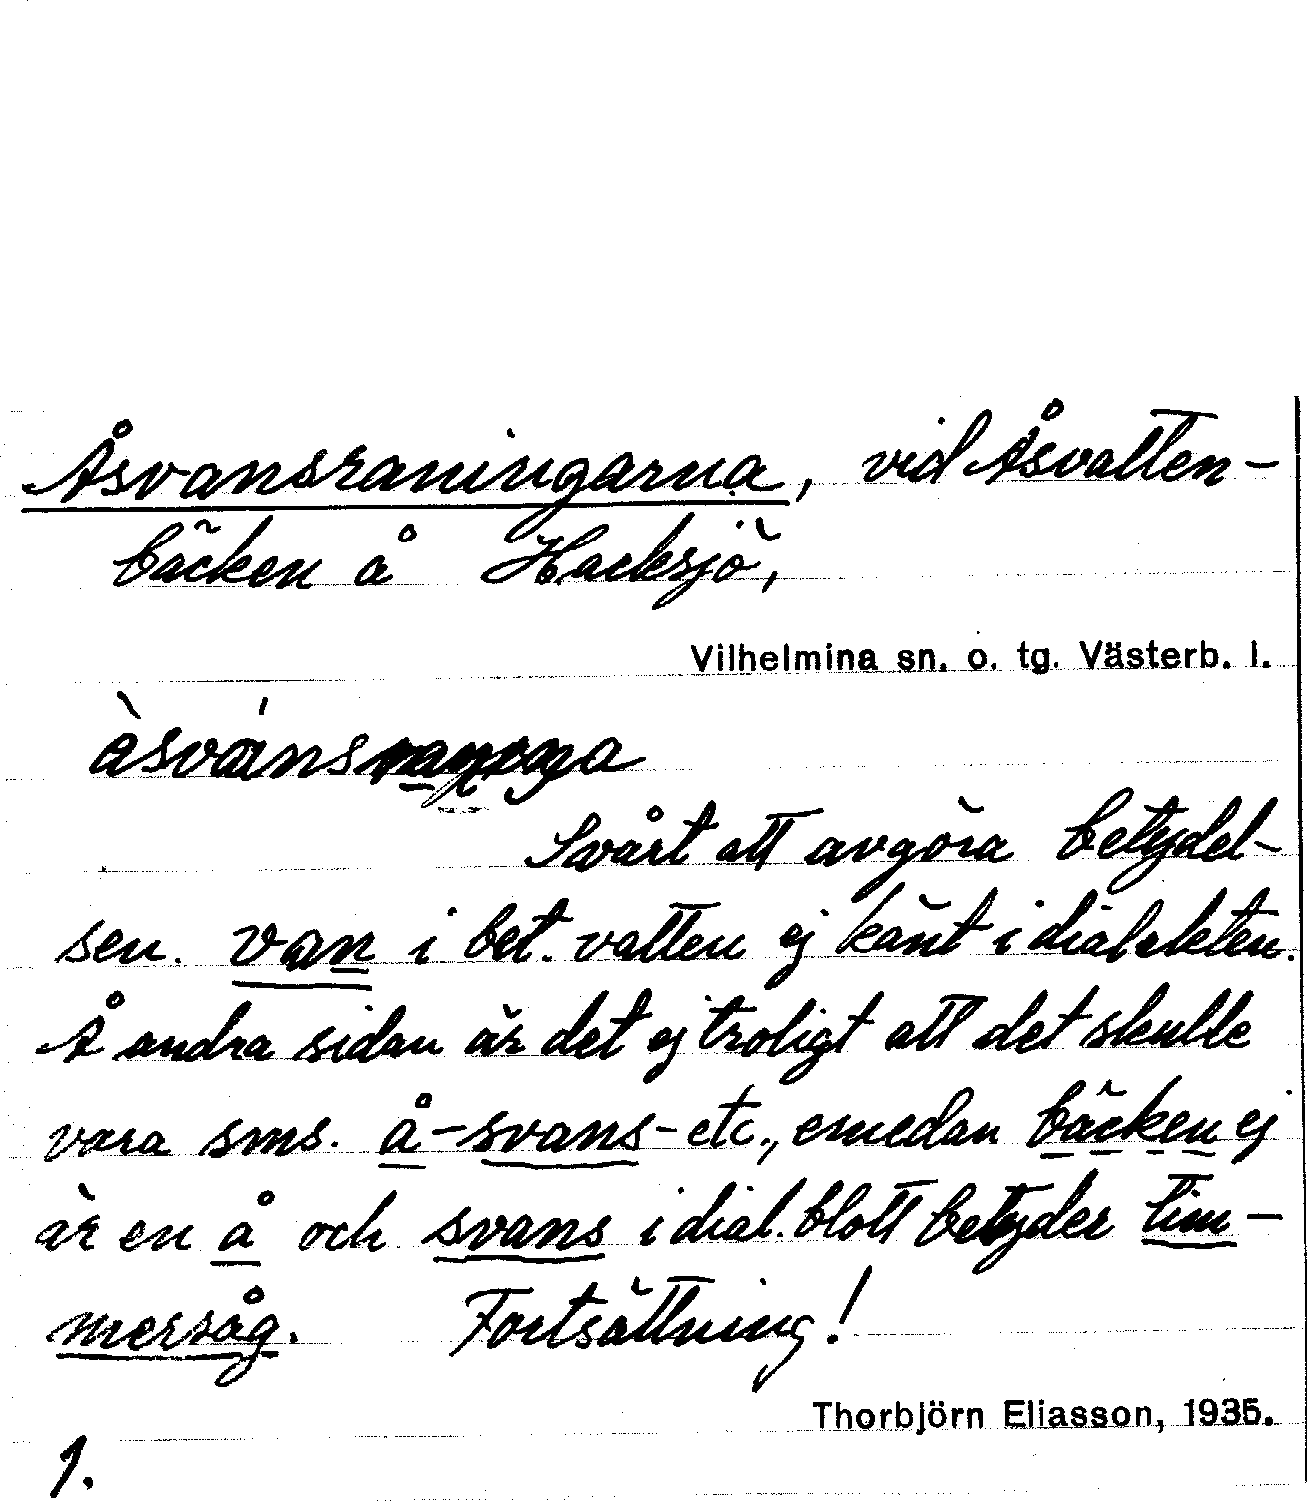 Åsvansraningarna, vid Åsvatten-
bäcken å Hacksjö,
Vilhelmina sn. o. tg. Västerb. l.
Svårt att avgöra betydel-
sen. van i bet. vatten ej känt i dialekten.
Å andra sidan är det ej troligt att det skulle
vara sms. å-svans- etc., emedan bäcken ej
är en å och svans i dial. blott betyder tim-
mersåg. Fortsättning!
Thorbjörn Eliasson, 1935.
1.